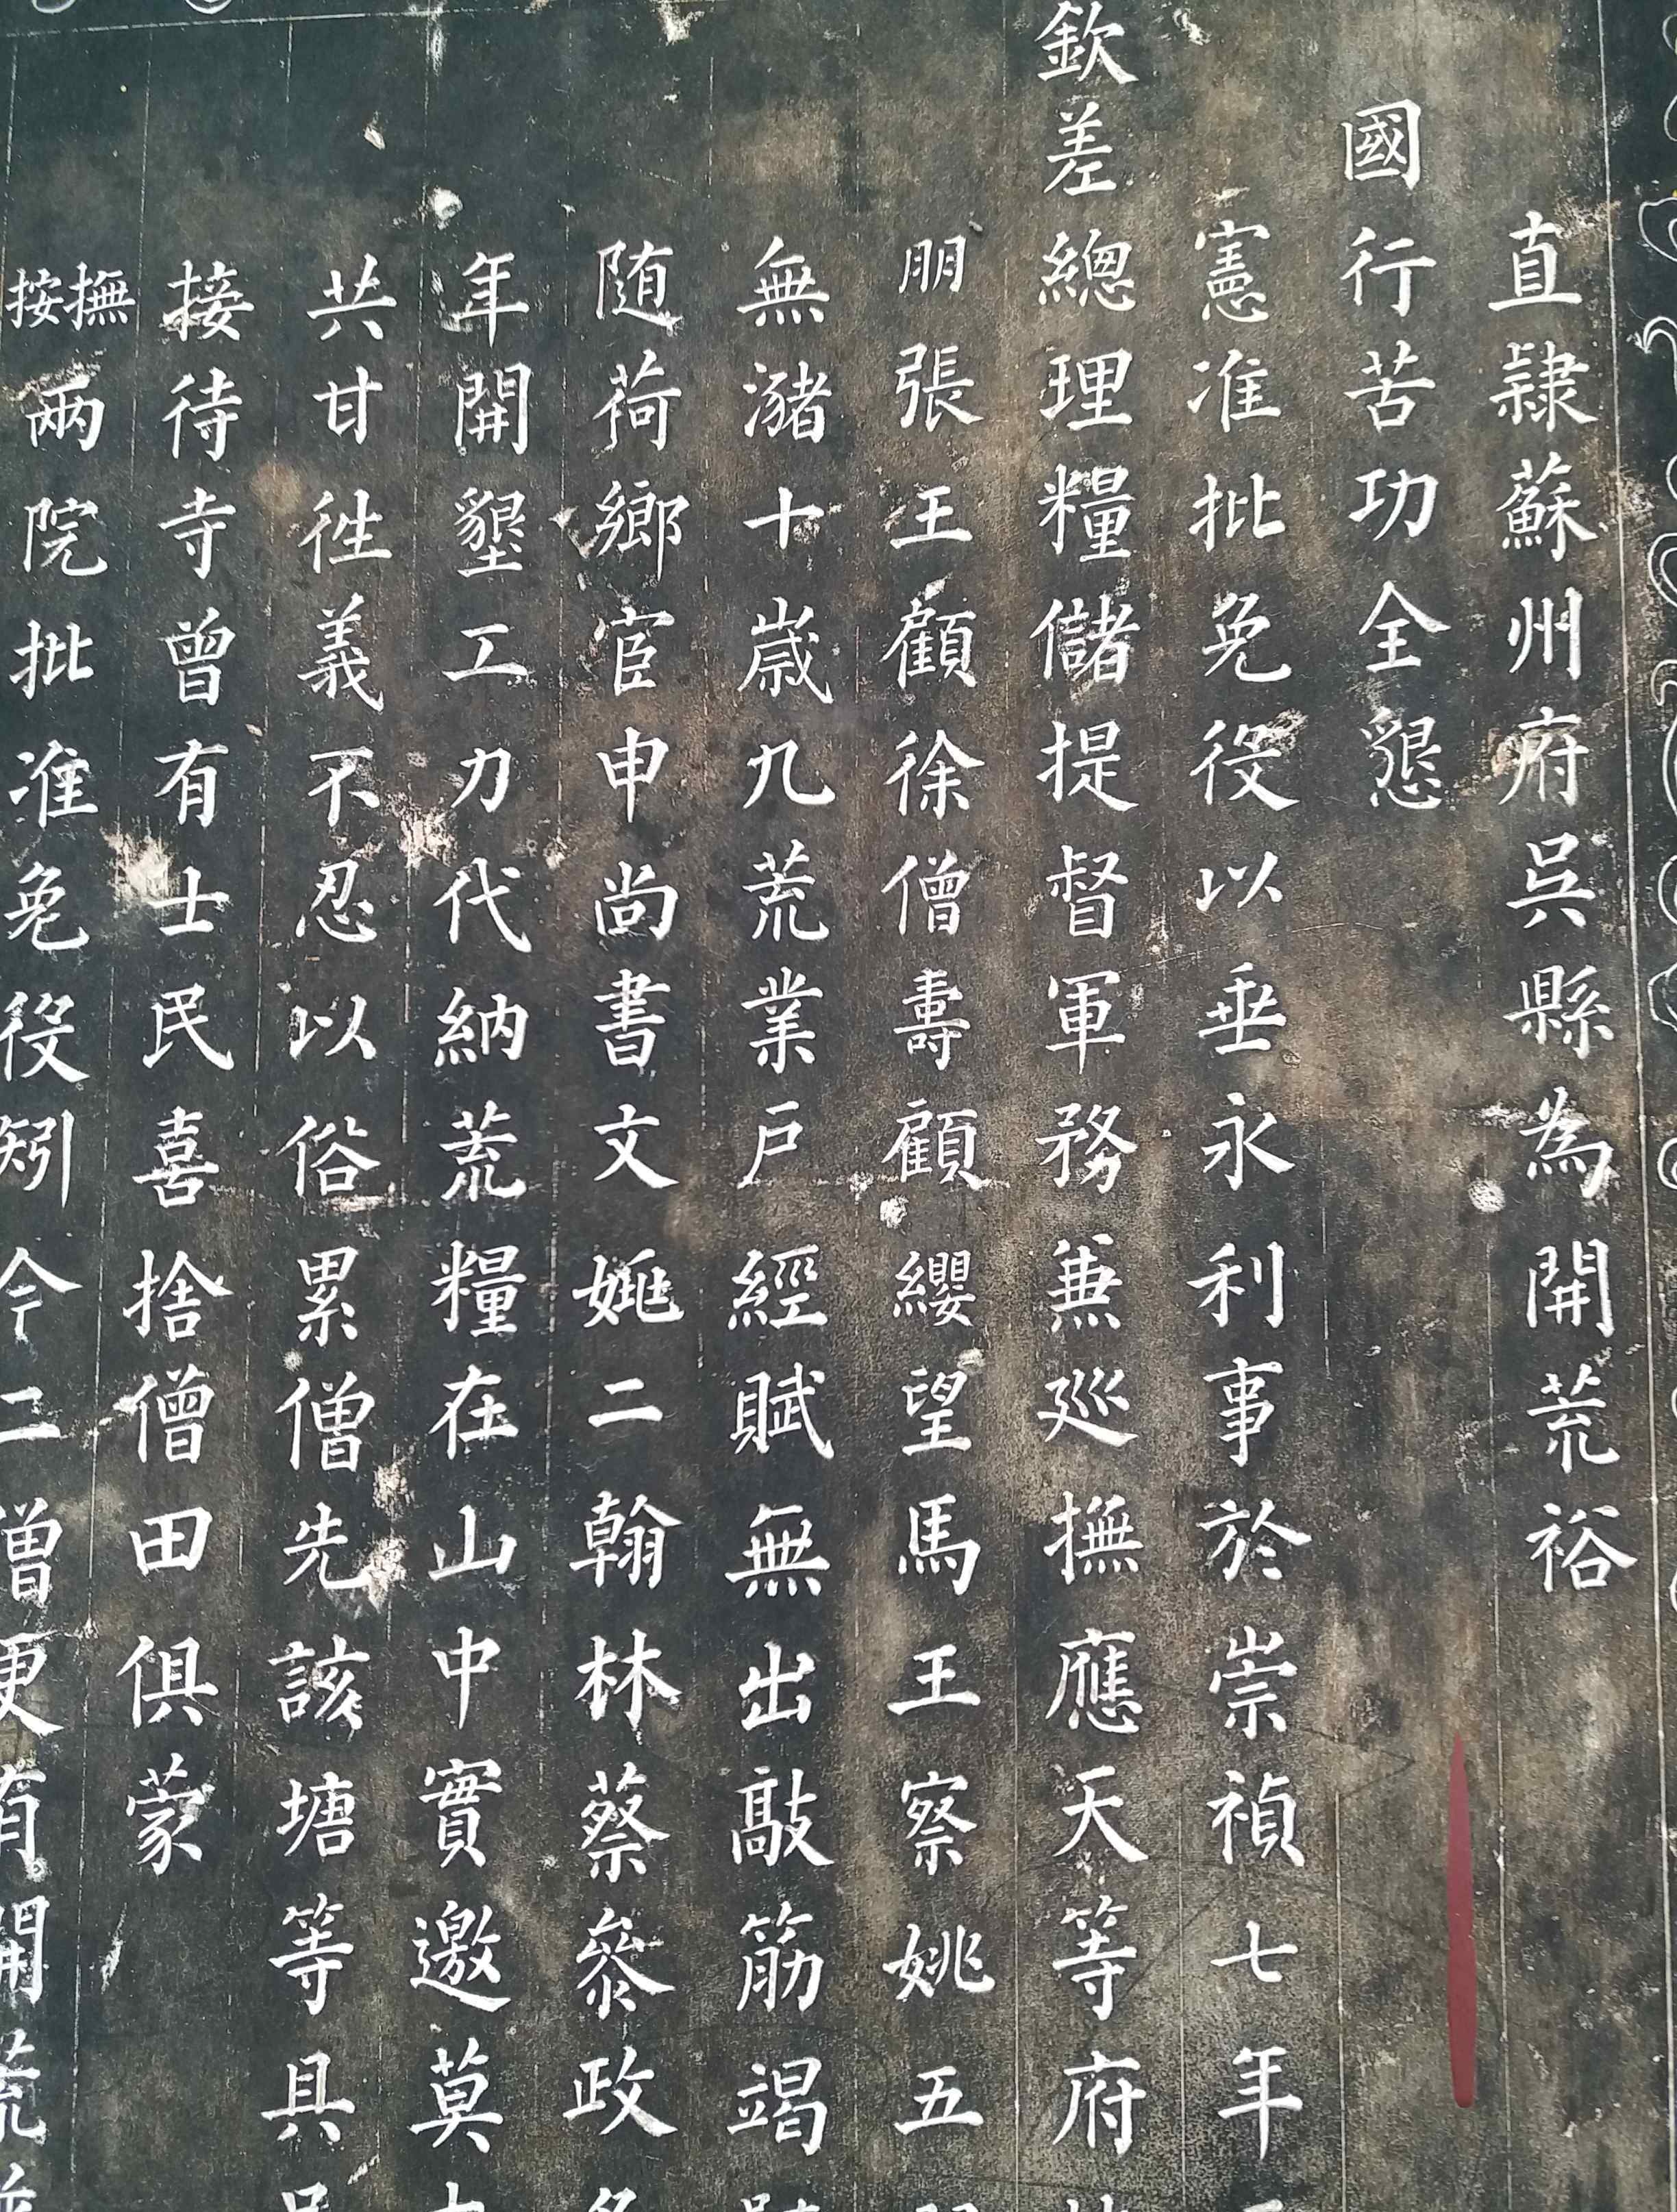 直隷蘇州府吳縣為開荒裕
國行苦功全懇
憲准批免役以垂永利事於崇禎七年
欽差總理糧儲提督軍務兼廵撫應天等府
朋張王顧徐僧壽顧纓望馬王察姚五
無瀦十歲九荒業戶經賦無出敲筋竭
随荷鄉宦申尚書文姚二翰林蔡叅政
年開墾工力代納荒糧在山中實邀莫
共甘徃義不忍以俗累僧先該塘等具
接待寺曾有士民喜捨僧田俱蒙
撫按兩院批准免役矧今二僧更有開荒